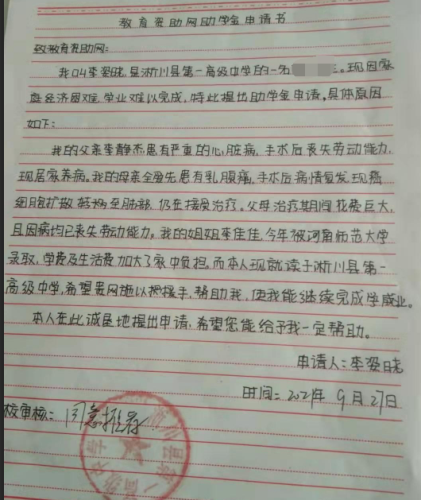 教育资助网助学金申请书
致教育资助网：
我叫李姿晓,是淅川县第一高级中学的一名 。现因家
庭经济困难,学业难以完成,特此提出助学金申请。具体原因
如下：
我的父亲李静杰患有严重的心脏病,手术后丧失劳动能力,
现居家养病。我的母亲全爱先患有乳腺癌,手术后病情复发,现癌
细胞扩散转移至肺部,仍在接受治疗。父母治疗期间花费巨大,
且因病均已丧失劳动能力。我的姐姐李佳佳,今年被河南师范大学
录取,学费及生活费加大了家中负担。而本人现就读于淅川县第一
高级中学,希望贵网施以援手,帮助我,使我能继续完成学业。
本人在此诚恳地提出申请,希望您能给予我一定帮助。
申请人：李姿晓
时间：2021年9月27日
校审核：同意推荐